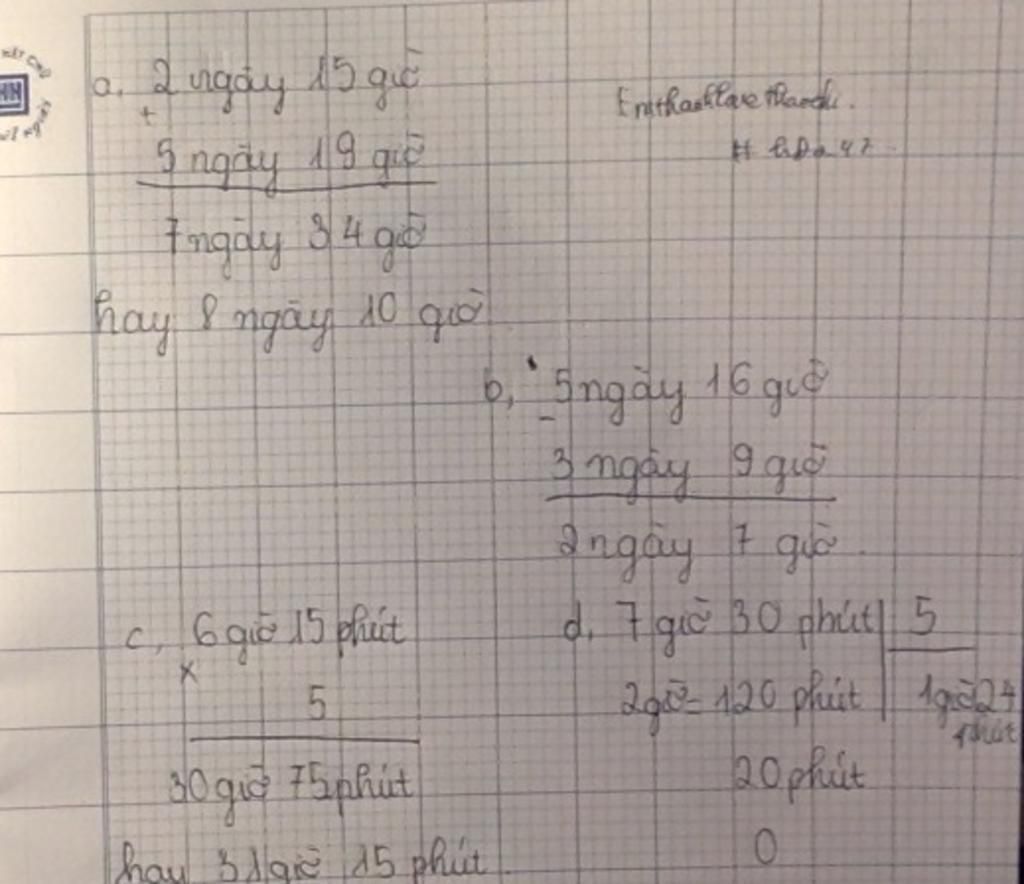 a. 2 ngày 15 giờ
+
5 ngày 19 giờ
7 ngày 34 giờ
hay 8 ngày 10 giờ
b, 5 ngày 16 giờ
-
3 ngày 9 giờ
2 ngày 7 giờ
c, 6 giờ 15 phút
x
5
30 giờ 75 phút
hay 31 giờ 15 phút
d, 7 giờ 30 phút 5
2 giờ = 120 phút 1 giờ 24
phút
20 phút
0